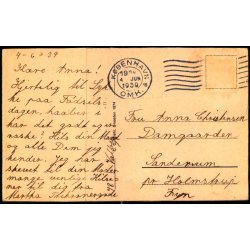 4-6-39
Kære Anna!
Hjertelig til Lyk-
ke paa Fødsels-
dagen, haaber i
har det godt og er
raske? Hils din Mand
og alle Dem jeg
kender. Jeg har
skrevet til din Moder
mange venlige Hils-
ner til dig fra
Martha
KØBENHAVN
4 JUN
1939
OMK.
Fru Anna Christensen
Damgaarden
Sanderum
pr Holmstrup
Fyn